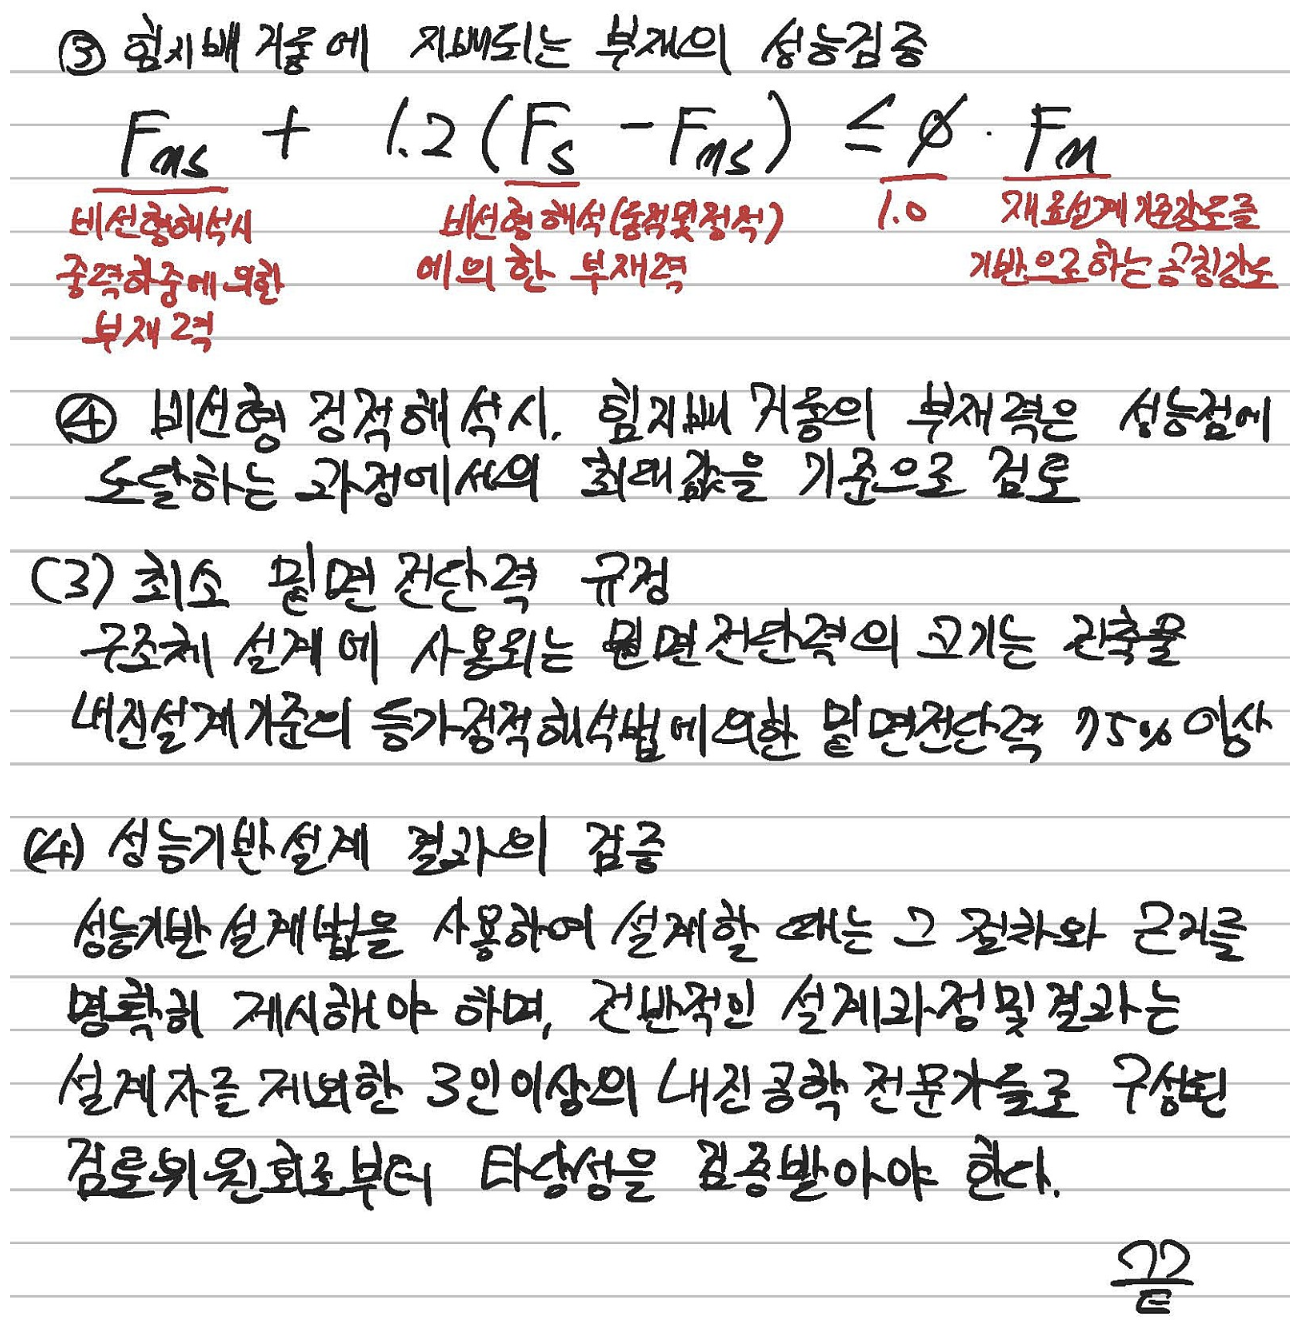 ③ 힘지배 거동에 지배되는 부재의 성능검증
Fns + 1.2 (Fs - Fns) ≤ ø · Fn
비선형해석시 중력하중에 의한 부재력
비선형 해석(동적및정적)에 의한 부재력
1.0
재료설계기준강도를 기반으로하는 공칭강도
④ 비선형 정적해석시. 힘지배 거동의 부재력은 성능점에
도달하는 과정에서의 최대값을 기준으로 검토
(3) 최소 밑면 전단력 규정
구조체 설계에 사용되는 밑면전단력의 크기는 건축물
내진설계기준의 등가정적해석법에의한 밑면전단력 75% 이상
(4) 성능기반설계 결과의 검증
성능기반 설계법을 사용하여 설계할 때는 그 절차와 근거를
명확히 제시해야 하며, 전반적인 설계과정및 결과는
설계자를 제외한 3인이상의 내진공학 전문가들로 구성된
검토위원회로부터 타당성을 검증받아야 한다.
끝